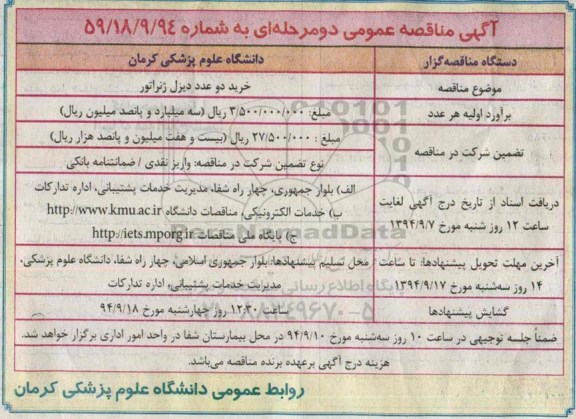 آگهی مناقصه عمومی دومرحله‌ای به شماره ۵۹/۱۸/۹/۹۴
دستگاه مناقصه‌گزار
دانشگاه علوم پزشکی کرمان
موضوع مناقصه
خرید دو عدد دیزل ژنراتور
برآورد اولیه هر عدد
مبلغ: ۳/۵۰۰/۰۰۰/۰۰۰ ریال (سه میلیارد و پانصد میلیون ریال)
تضمین شرکت در مناقصه
مبلغ : ۲۷/۵۰۰/۰۰۰ ریال (بیست و هفت میلیون و پانصد هزار ریال)
نوع تضمین شرکت در مناقصه: واریز نقدی / ضمانتنامه بانکی
دریافت اسناد از تاریخ درج آگهی لغایت
ساعت ۱۲ روز شنبه مورخ ۱۳۹۴/۹/۷
الف) بلوار جمهوری، چهار راه شفا، مدیریت خدمات پشتیبانی، اداره تدارکات
ب) خدمات الکترونیکی/ مناقصات دانشگاه http://www.kmu.ac.ir
ج) پایگاه ملی مناقصات http://iets.mporg.ir
آخرین مهلت تحویل پیشنهادها: تا ساعت
۱۴ روز سه‌شنبه مورخ ۱۳۹۴/۹/۱۷
محل تسلیم پیشنهادها: بلوار جمهوری اسلامی، چهار راه شفا، دانشگاه علوم پزشکی،
مدیریت خدمات پشتیبانی، اداره تدارکات
گشایش پیشنهادها
ساعت ۱۲:۳۰ روز چهارشنبه مورخ ۹۴/۹/۱۸
ضمناً جلسه توجیهی در ساعت ۱۰ روز سه‌شنبه مورخ ۹۴/۹/۱۰ در محل بیمارستان شفا در واحد امور اداری برگزار خواهد شد.
هزینه درج آگهی برعهده برنده مناقصه می‌باشد.
روابط عمومی دانشگاه علوم پزشکی کرمان